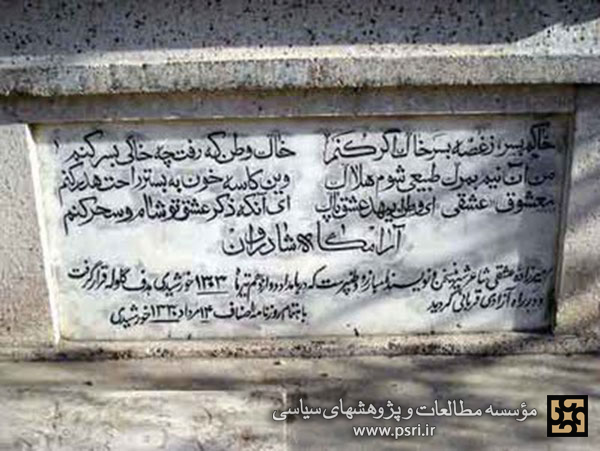 خاکم بسر، ز غصه بسر خاک اگر کنم خاک وطن که رفت چه خاکی بسر کنم
من آن نیم بمرگ طبیعی شوم هلاک وین کاسه خون به بستر راحت هدر کنم
معشوق «عشقی» ای وطن ای مهد عشق پاک ای آنکه ذکر عشق تو شام و سحر کنم
آرامگاه شادروان
میرزاده عشقی شاعر شیرین سخن و نویسنده مبارز و میهنپرست که در بامداد دوازدهم تیرماه ۱۳۰۳ خورشیدی هدف گلوله قرار گرفت
و در راه آزادی قربانی گردید
باهتمام روزنامه انصاف ۱۴ مرداد ۱۳۳۰ خورشیدی
مؤسسه مطالعات و پژوهشهای سیاسی
www.psri.ir